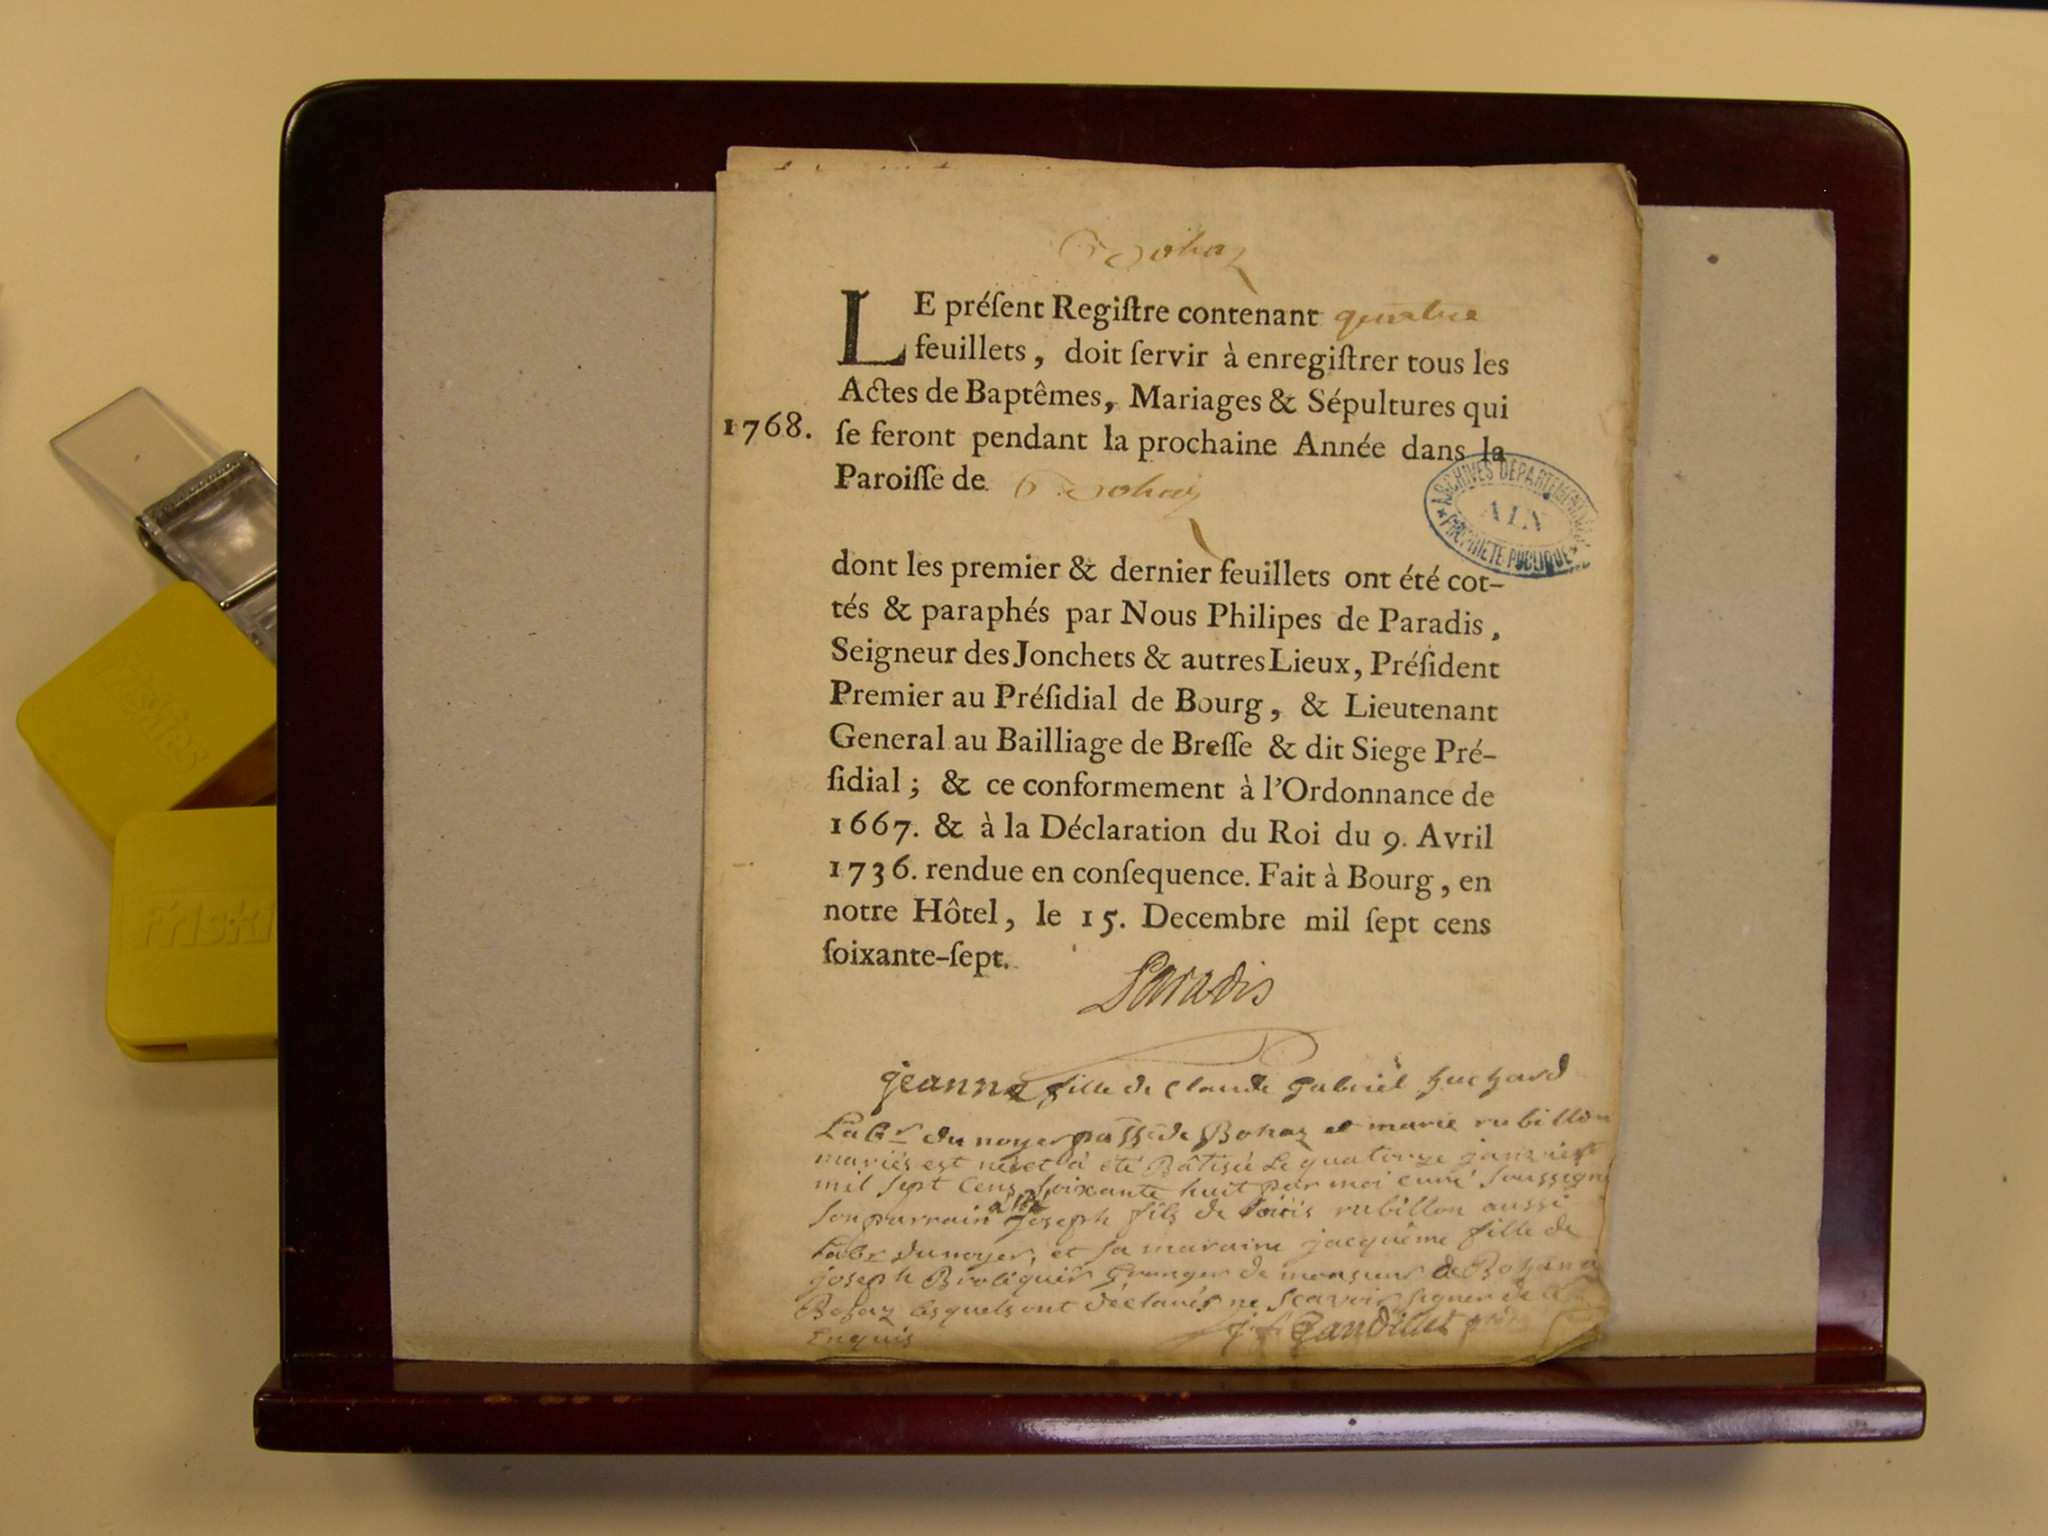 Bohaz
LE préſent Regiſtre contenant quatre
feuillets, doit ſervir à enregiſtrer tous les
Actes de Baptêmes, Mariages & Sépultures qui
1768. ſe feront pendant la prochaine Année dans la
Paroiſſe de Bohaz
ARCHIVES DÉPARTEMENTALES
AIN
PROPRIÉTÉ PUBLIQUE
dont les premier & dernier feuillets ont été cot-
tés & paraphés par Nous Philipes de Paradis,
Seigneur des Jonchets & autres Lieux, Préſident
Premier au Préſidial de Bourg, & Lieutenant
General au Bailliage de Breſſe & dit Siege Pré-
ſidial; & ce conformement à l'Ordonnance de
1667. & à la Déclaration du Roi du 9. Avril
1736. rendue en conſequence. Fait à Bourg, en
notre Hôtel, le 15. Decembre mil ſept cens
ſoixante-ſept.
Paradis
jeanne fille de Claude Gabriël
Labr du noyer de Bohaz et marie rubillon
mariés est néé et a été Bâtisée Le quatorze janvier
mil sept Cens soixante huit par moi curé soussigné
son parrain joseph fils de rubillon aussi
Labr du noyer, et sa maraine jacquême fille de
joseph Granger de monsieur de
Bohaz lesquels ont déclarés ne scavoir signer de ce
Enquis
Friskies
Friski